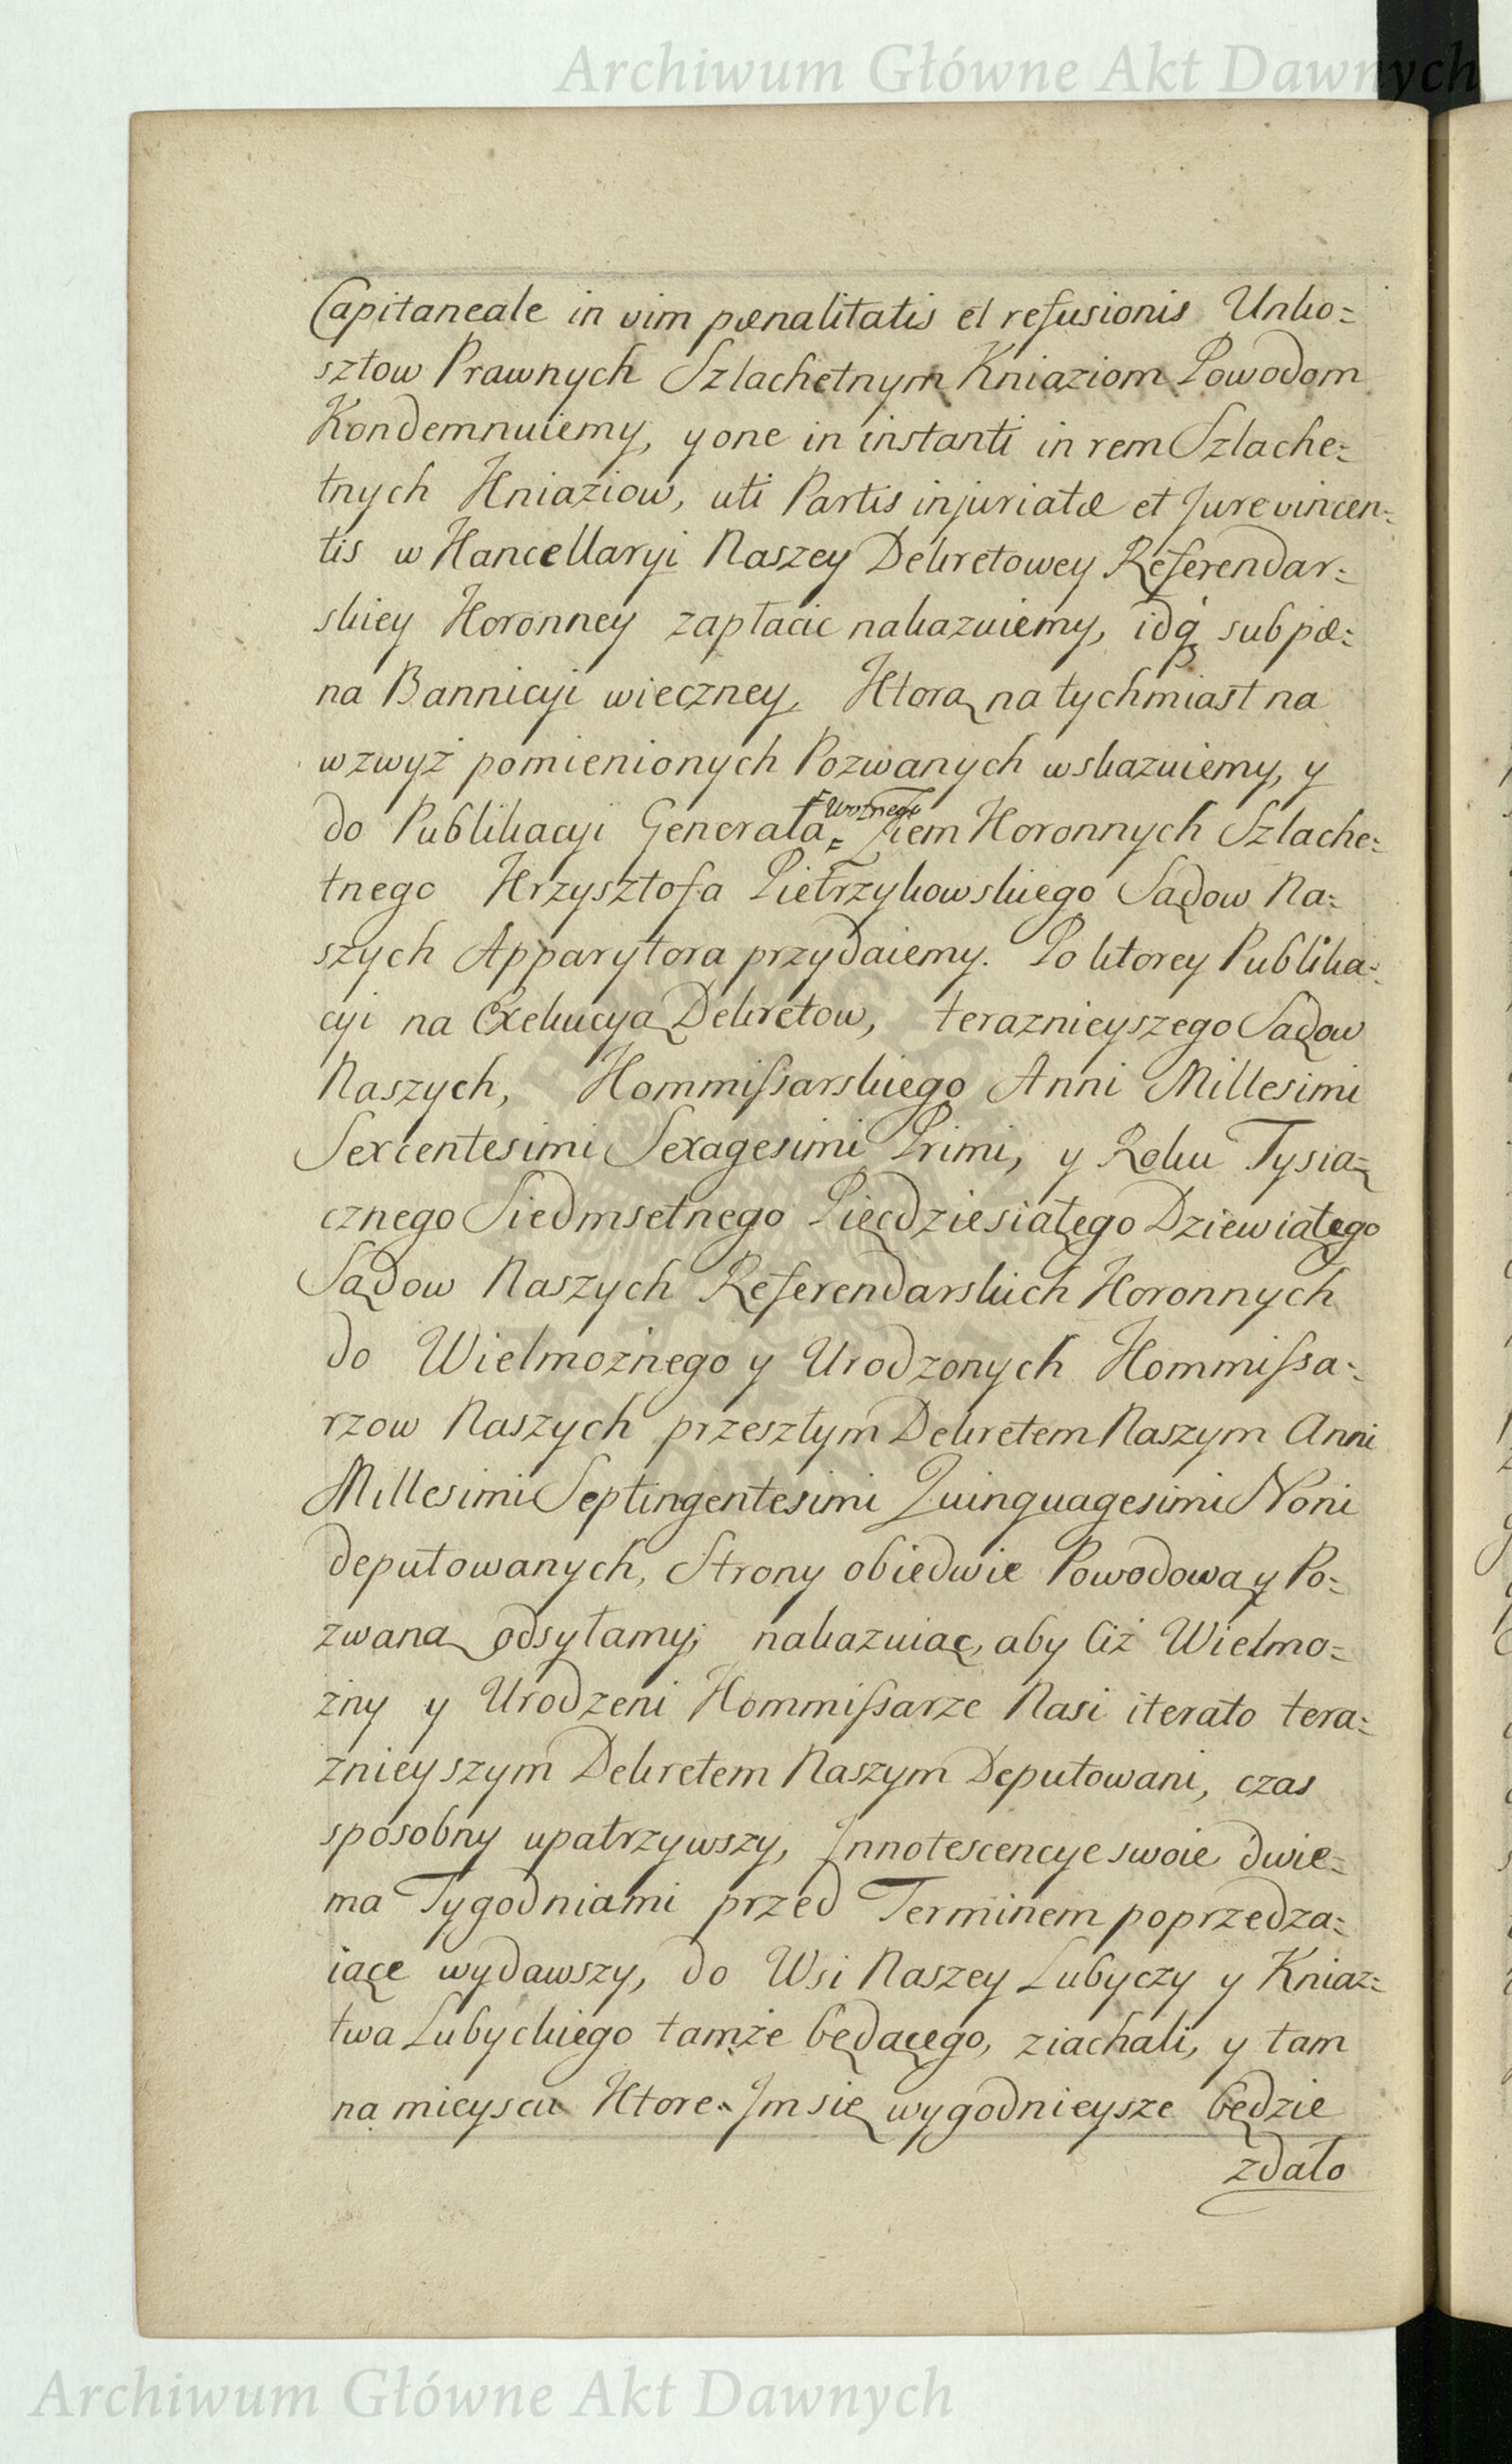 Archiwum Główne Akt Dawnych
Capitaneale in vim pænalitatis et refusionis Unko=
sztow Prawnych Szlachetnym Kniaziom Powodom
Kondemnuiemy, y one in instanti in rem Szlache=
tnych Kniaziow, uti Partis injuriatæ et Jure vincen=
tis w Kancellaryi Naszey Dekretowey Referendar=
skiey Koronney zapłacic nakazuiemy, idq3 sub pæ=
na Bannicyi wieczney, Ktorą natychmiast na
wzwyż pomienionych Pozwanych wskazuiemy, y
do Publikacyi Generała = Ziem Koronnych Szlache=
= Woznego
tnego Krzysztofa Pietrzykowskiego Sądow Na=
szych Apparytora przydaiemy. Po ktorey Publika=
cyi na Exekucyą Dekretow, teraznieyszego Sądow
Naszych, Kommißarskiego Anni Millesimi
Sexcentesimi Sexagesimi Primi, y Roku Tysią=
cznego Siedmsetnego Pięcdziesiątego Dziewiątego
Sądow Naszych Referendarskich Koronnych
do Wielmożnego y Urodzonych Kommißa=
rzow Naszych przeszłym Dekretem Naszym Anni
Millesimi Septingentesimi Quinquagesimi Noni
deputowanych, Strony obiedwie Powodową y Po=
zwaną odsyłamy; nakazuiąc, aby Ciż Wielmo=
żny y Urodzeni Kommißarze Nasi iterato tera=
znieyszym Dekretem Naszym Deputowani, czas
sposobny upatrzywszy, Innotescencye swoie dwie=
ma Tygodniami przed Terminem poprzedza=
iące wydawszy, do Wsi Naszey Lubyczy y Kniaz=
twa Lubyckiego tamże będącego, ziachali, y tam
na mieyscu Ktore Im się wygodnieysze będzie
zdało
Archiwum Główne Akt Dawnych